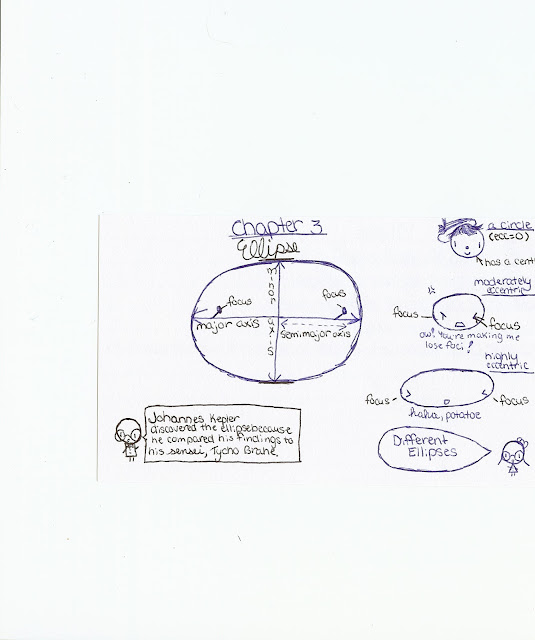 Chapter 3
Ellipse
minor axis
focus
focus
major axis
semimajor axis
Johannes Kepler
discovered the ellipse because
he compared his findings to
his sensei, Tycho Brahe.
a circle
(ecc=0)
has a cent
moderately
eccentric
focus
focus
ow! You're making me
lose foci!
highly
eccentric
focus
focus
potatoe
Different
Ellipses